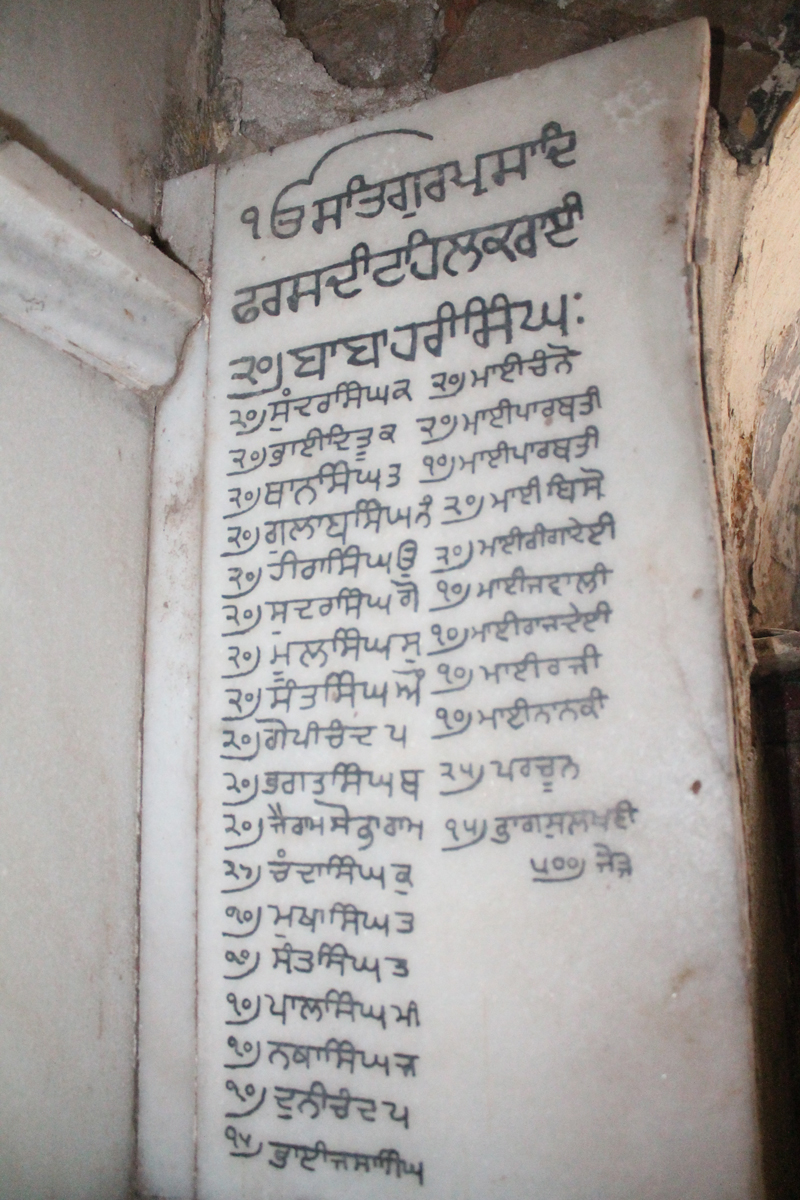 ੴ ਸਤਿਗੁਰਪ੍ਰਸਾਦਿ
ਫਰਸਦੀਟਹਿਲਕਰਾਈ
੨੦) ਬਾਬਾਹਰੀਸਿੰਘ:
੨੦) ਸੁੰਦਰਸਿੰਘਕ
੨੦) ਭਾਈਦਿਤੂਕ
੨੦) ਥਾਨਸਿੰਘਤ
੨੦) ਗੁਲਾਬਸਿੰਘਨੰ
੨੦) ਹੀਰਾਸਿੰਘਉ
੨੦) ਸੁਦਰਸਿੰਘਗੋ
੨੦) ਮੂਲਸਿੰਘਸੁ
੨੦) ਸੰਤਸਿੰਘਔ
੨੦) ਗੋਪੀਚੰਦਪ
੨੦) ਭਗਤਸਿੰਘਬ
੨੦) ਜੈਰਾਮਸੋਭਾਰਾਮ
੨੫) ਚੰਦਾਸਿੰਘਕੁ
੧੦) ਮੁਖਾਸਿੰਘਤ
੧੦) ਸੰਤਸਿੰਘਤ
੧੦) ਪਾਲਸਿੰਘਮੀ
੧੦) ਨਥਾਸਿੰਘਜ
੧੦) ਦੁਨੀਚੰਦਪ
੧੫) ਭਾਈਜਸਾਸਿੰਘ
੨੦) ਮਾਈਚੰਨੋ
੨੦) ਮਾਈਪਾਰਬਤੀ
੧੦) ਮਾਈਪਾਰਬਤੀ
੨੦) ਮਾਈਬਿਸੋ
੨੦) ਮਾਈਗੰਗਾਦੇਈ
੧੦) ਮਾਈਜਵਾਲੀ
੧੦) ਮਾਈਰਾਜਦੇਈ
੧੦) ਮਾਈਰਜੀ
੧੦) ਮਾਈਨਾਨਕੀ
੨੫) ਪਰਚੂਨ
੧੫)
੫੦੦) ਜੋੜ